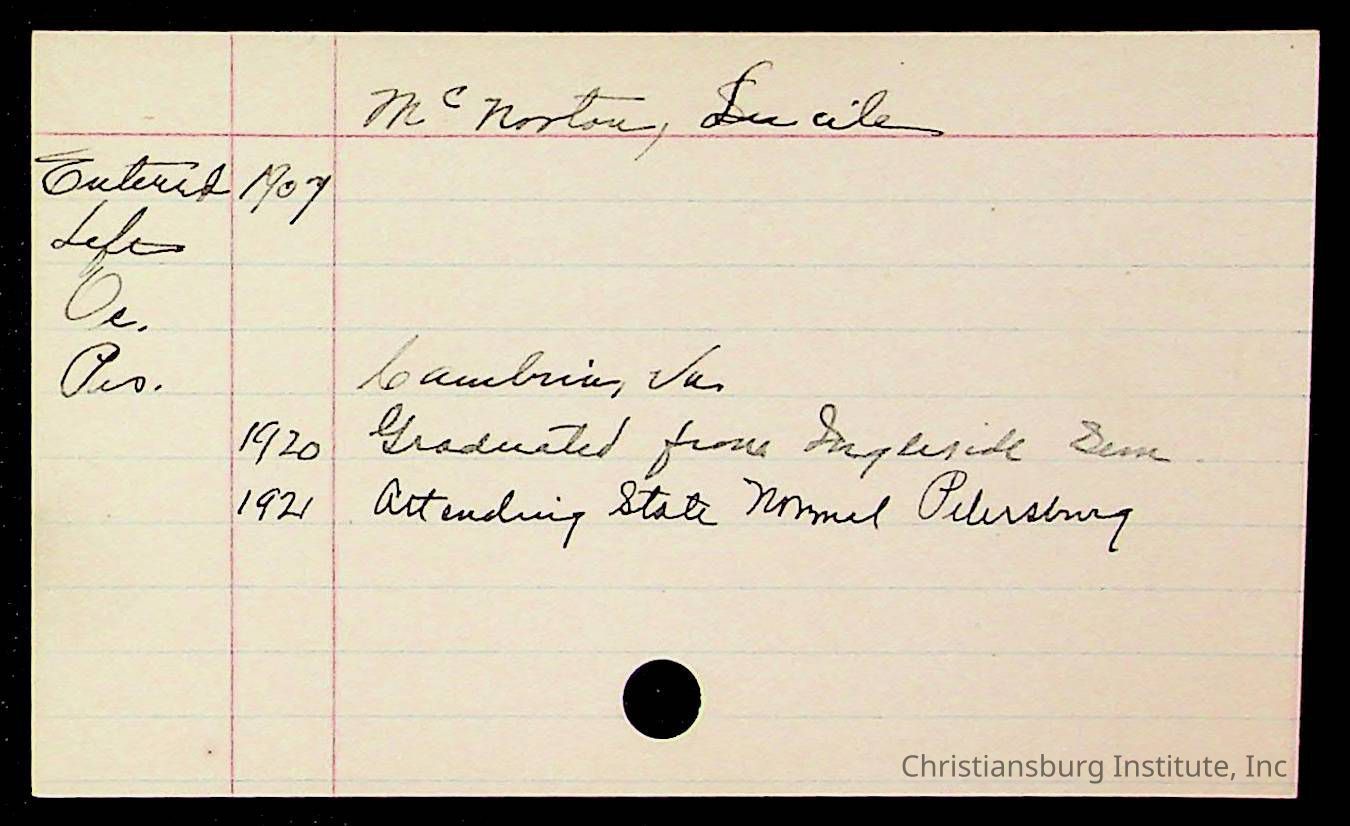 Mc Norton, Lucile
Entered 1907
Left
Oc.
Res. Cambria, Va.
1920 Graduated from Ingleside Sem
1921 Attending State Normal Petersburg
Christiansburg Institute, Inc